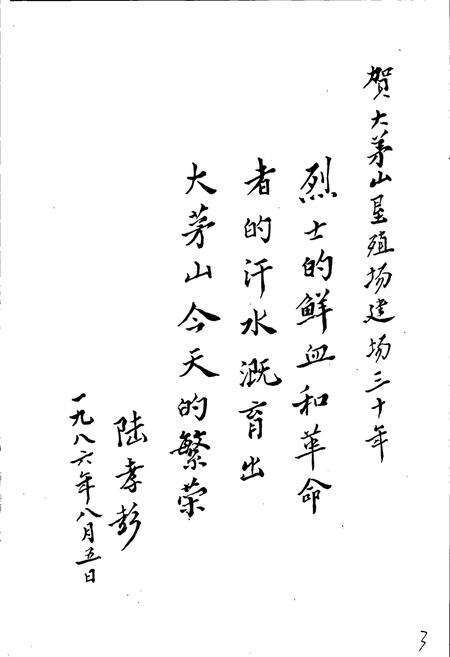 贺大茅山垦殖场建场三十年
烈士的鲜血和革命
者的汗水溉育出
大茅山今天的繁荣
陆孝彭
一九八六年八月五日
3